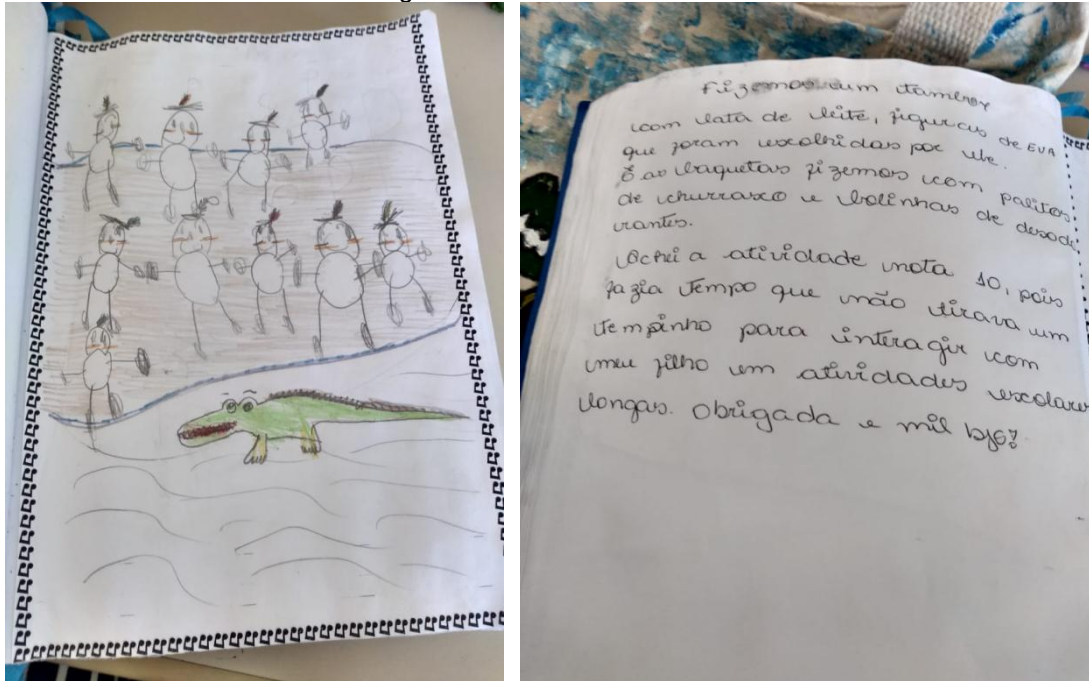 Fizemos um tambor
com lata de leite, figuras de EVA
que foram escolhidas por ele.
E as baquetas fizemos com palitos
de churrasco e bolinhas de desodo
rantes.
Achei a atividade nota 10, pois
fazia tempo que não tirava um
tempinho para interagir com
meu filho em atividades escolares
longas. Obrigada e mil bjo?